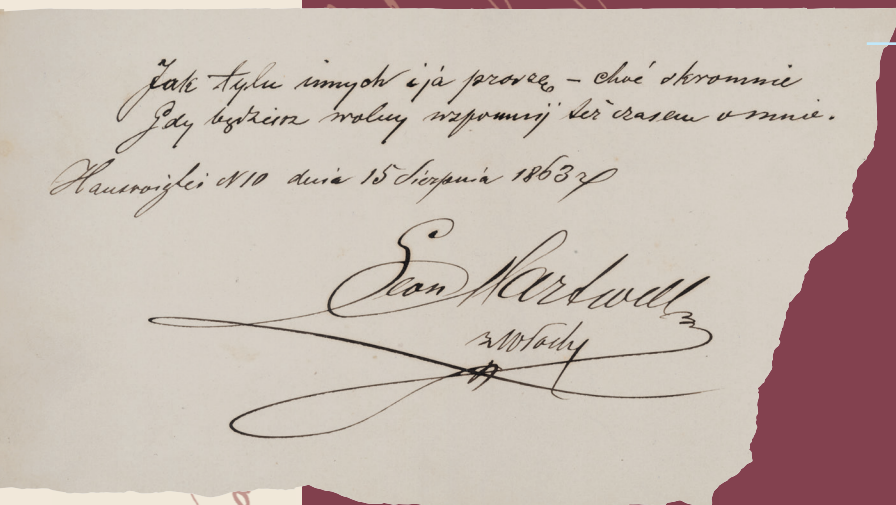 Jak tylu innych i ja proszę – choć skromnie
Gdy będziesz wolny wspomnij też czasem o mnie.
Hausvoigtei N 10 dnia 15 Sierpnia 1863 r
Leon Martwell
z Włoch